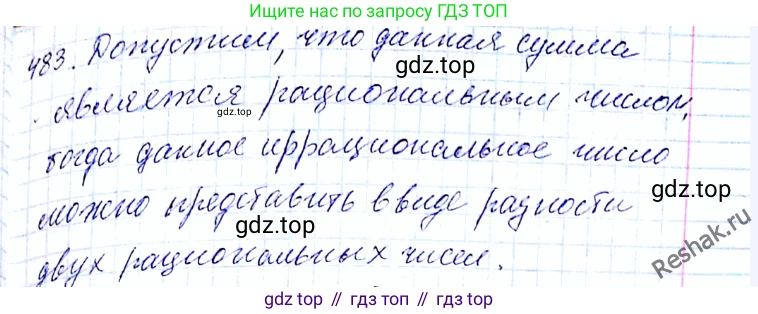 Ищите нас по запросу ГДЗ ТОП
483. Допустим, что данная сумма
gdz.top
является рациональным числом,
gdz.top
gdz.top
тогда данное иррациональное число
gdz.top
можно представить в виде разности
gdz.top
двух рациональных чисел.
Reshak.ru
gdz top // гдз топ // gdz.top